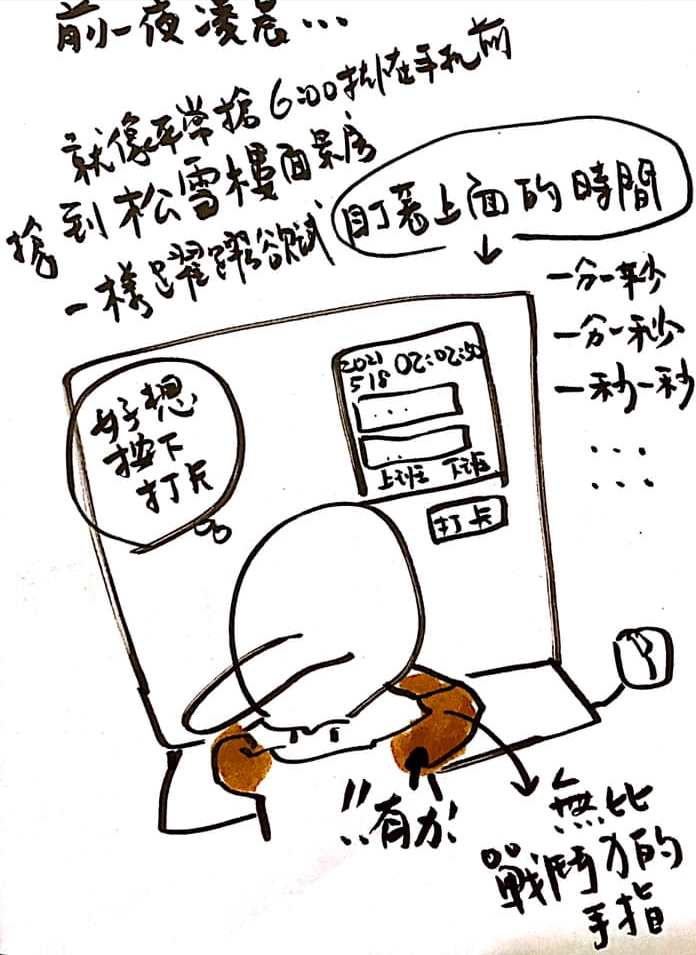 前一夜凌晨...
就像平常搶6:00掛在手機前
搶到松雪樓面景房
一樣躍躍欲試
盯著上面的時間
一分一秒
一分一秒
一秒一秒
...
...
好想
按下
打卡
2021
5 18
02:02:50
...
...
上班 下班
打卡
!!有力!
無比
戰鬥力的
手指